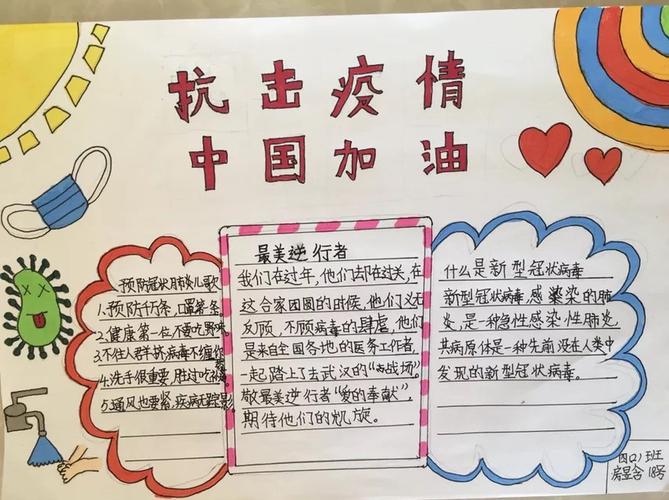 抗击疫情
中国加油
预防冠状肺炎儿歌
1.预防千万条,口罩第一条
2.健康第一位,不要吃野味
3.不住人群挤,病毒不缠你
4.洗手很重要,胜过吃
5.通风也要紧,疾病无踪影
最美逆行者
我们在过年,他们却在过关,在
这合家团圆的时候,他们义无
反顾,不顾病毒的肆虐,他们
是来自全国各地的医务工作者,
一起踏上了去武汉的“战场”。
敬最美逆行者“爱的奉献”,
期待他们的凯旋。
什么是新型冠状病毒
新型冠状病毒,感染染的肺
炎,是一种急性感染性肺炎,
其病原体是一种先前没在人类中
发现的新型冠状病毒。
四(2)班
18号